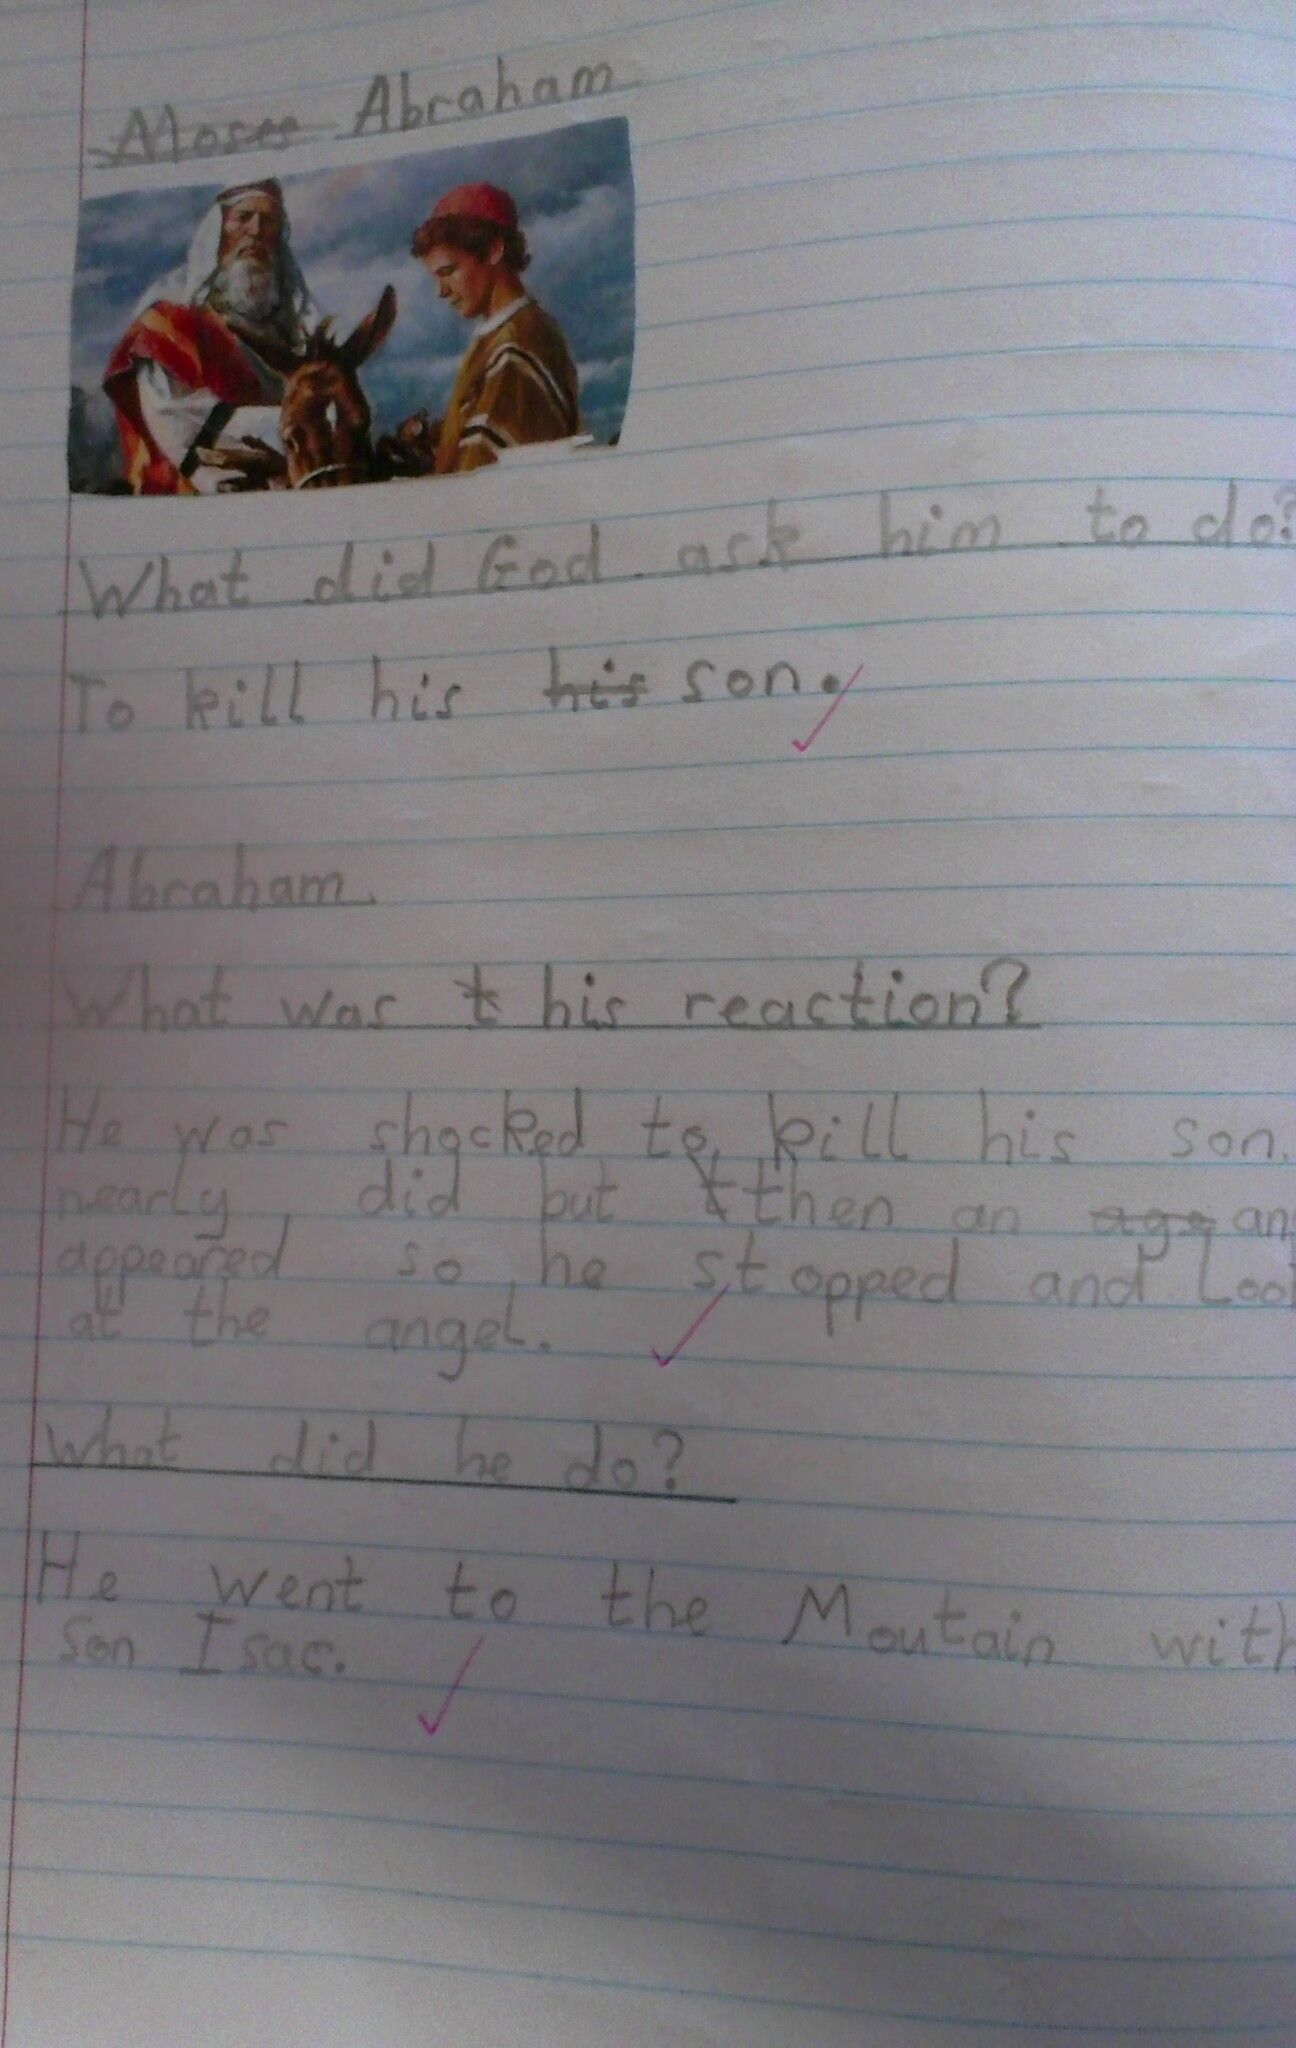 Moses Abraham
What did God ask him to do?
To kill his his son.
Abraham.
What was t his reaction?
He was shocked to kill his son.
nearly did but t then an age an
appeared so he stopped and Loo
at the angel.
What did he do?
He went to the Moutain with
son Isac.